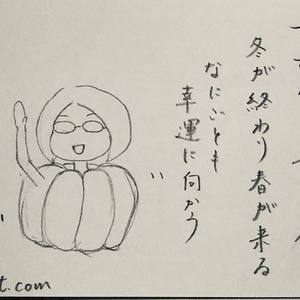 冬が終わり春が来る
なにごとも
幸運に向かう
t.com